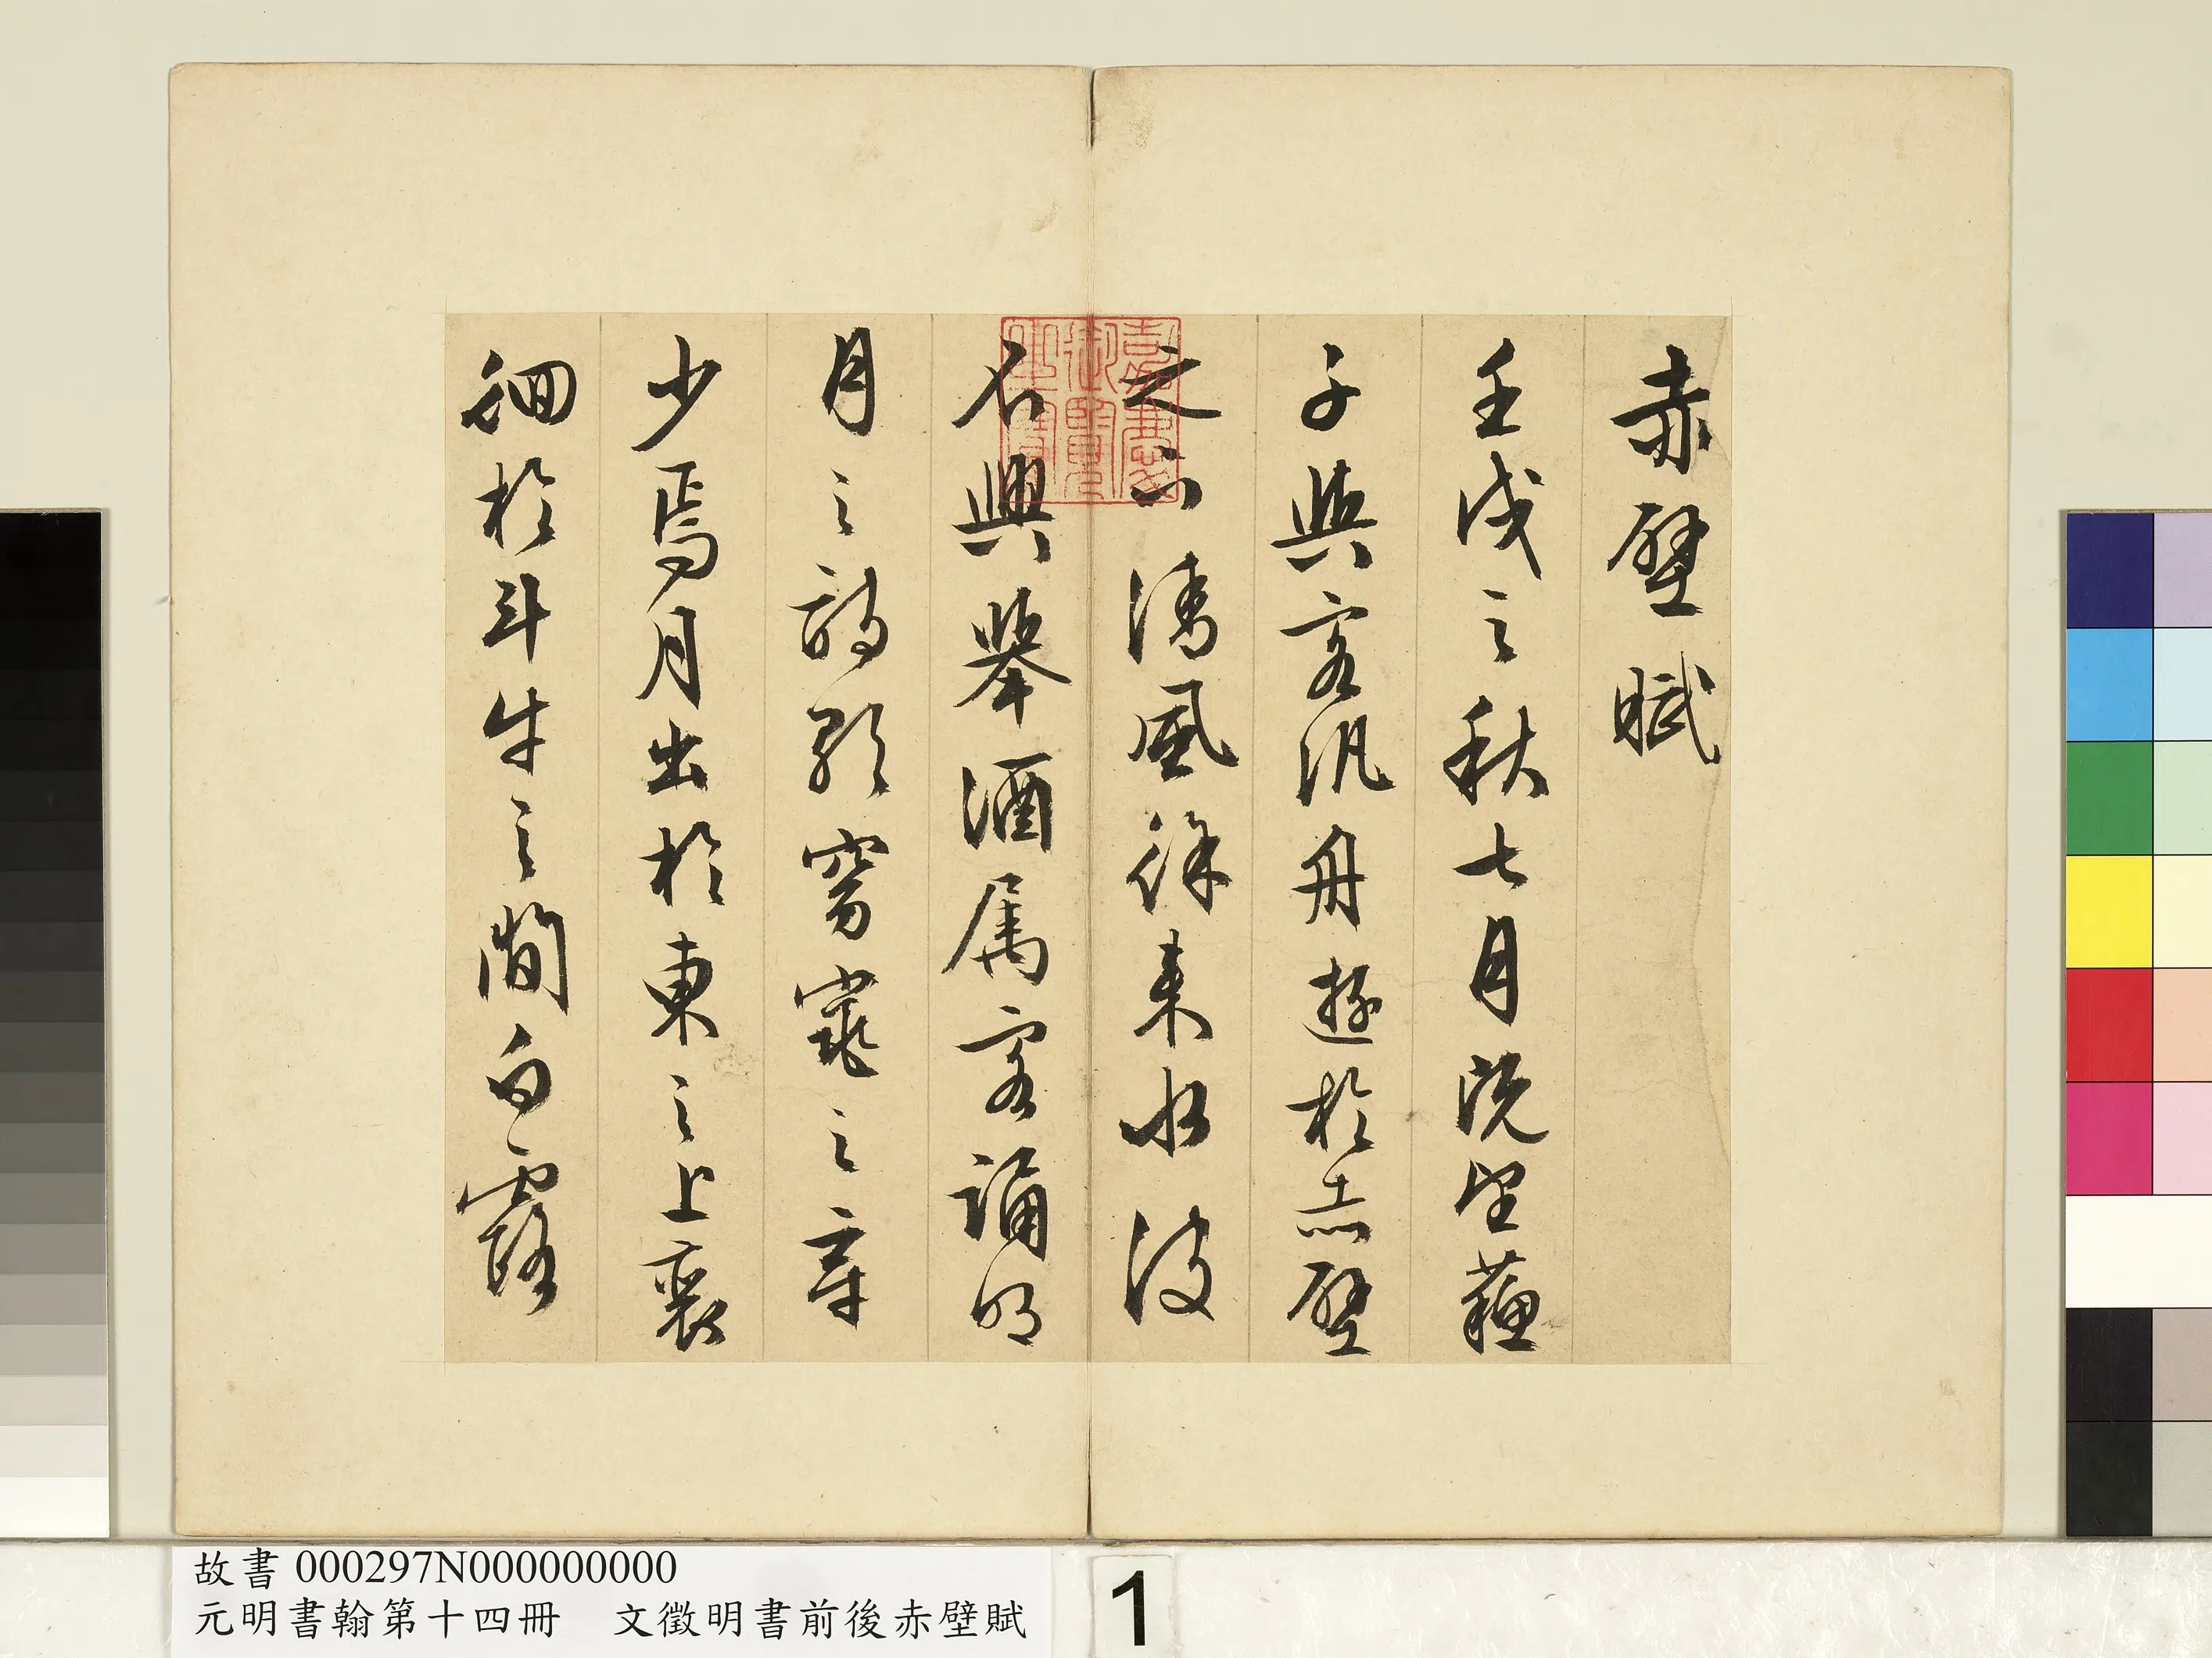 赤壁賦
壬戌之秋七月既望蘓
子與客汎舟遊於赤壁
之下清風徐来水波
不興舉酒属客誦明
月之詩歌窈窕之章
少焉月出於東之上裵
徊於斗牛之間白露
嘉慶御覽之寶
故書 000297N000000000
元明書翰第十四冊 文徵明書前後赤壁賦
1